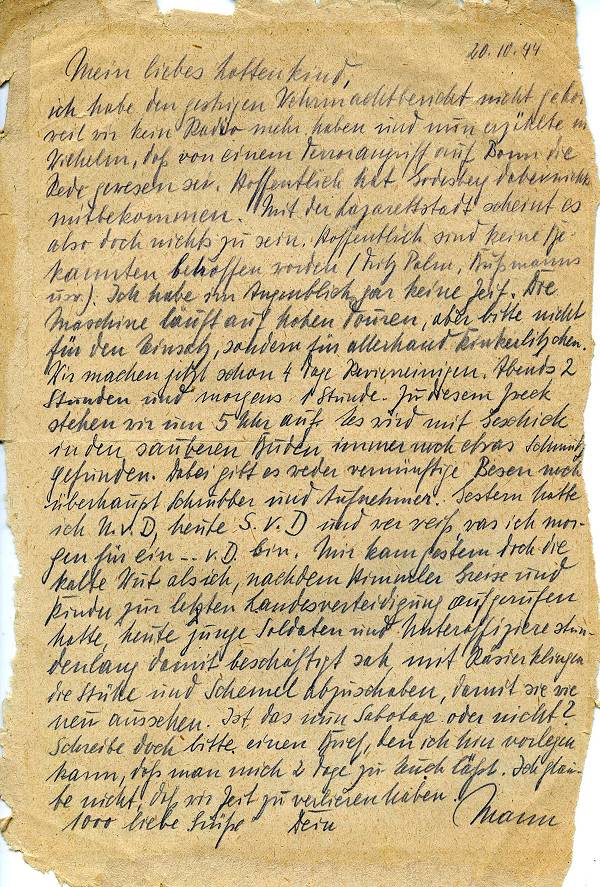 20.10.44
Mein liebes Lottenkind,
ich habe den gestrigen Wehrmachtbericht nicht gehö
weil wir kein Radio mehr haben und nun erzählte m
Wilhelm, daß von einem Terrorangriff auf Bonn die
Rede gewesen sei. Hoffentlich hat Godesberg dabei nichts
mitbekommen. Mit der Lazarettstadt scheint es
also doch nichts zu sein. Hoffentlich sind keine Be-
kannten betroffen worden (Fritz Palm, Bußmanns
usw.). Ich habe im Augenblick gar keine Zeit. Die
Maschine läuft auf hohen Touren, aber bitte nicht
für den Einsatz, sondern für allerhand Kinkerlitzchen.
Wir machen jetzt schon 4 Tage Revierreinigen. Abends 2
Stunden und morgens 1 Stunde. Zu diesem Zweck
stehen wir um 5 Uhr auf. Es wird mit Geschick
in den sauberen Buden immer noch etwas Schmutz
gefunden. Dabei gibt es weder vernünftige Besen noch
überhaupt Schrubber und Aufnehmer. Gestern hatte
ich U.v.D, heute G.v.D und wer weiß was ich mor-
gen für ein -- v.D. bin. Mir kam gestern doch die
kalte Wut als ich, nachdem Himmler Greise und
Kinder zur letzten Landesverteidigung aufgerufen
hatte, heute junge Soldaten und Unteroffiziere stun-
denlang damit beschäftigt sah mit Rasierklingen
die Stühle und Schemel abzuschaben, damit sie wie
neu aussehen. Ist das nun Sabotage oder nicht?
Schreibe doch bitte einen Brief, den ich hier vorlegen
kann, daß man mich 2 Tage zu Euch läßt. Ich glau-
be nicht, daß wir Zeit zu verlieren haben.
1000 liebe Grüße Dein Mann